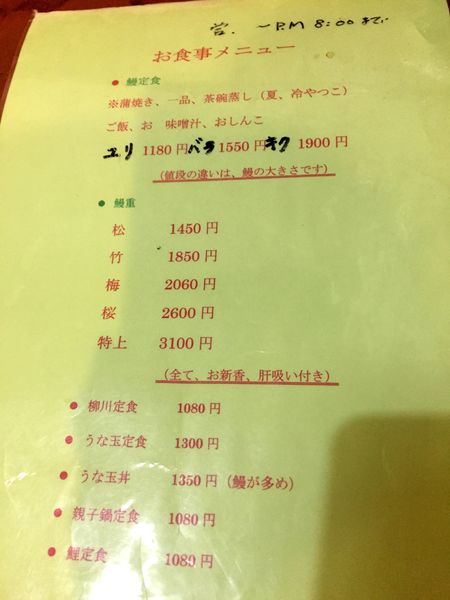 営. 〜PM 8:00まで
お食事メニュー
● 鰻定食
※蒲焼き、一品、茶碗蒸し(夏、冷やっこ)
ご飯、お 味噌汁、おしんこ
ユリ 1180円 バラ 1550円 キク 1900円
(値段の違いは、鰻の大きさです)
● 鰻重
松 1450円
竹 1850円
梅 2060円
桜 2600円
特上 3100円
(全て、お新香、肝吸い付き)
● 柳川定食 1080円
● うな玉定食 1300円
● うな玉丼 1350円(鰻が多め)
● 親子鍋定食 1080円
● 鯉定食 1080円